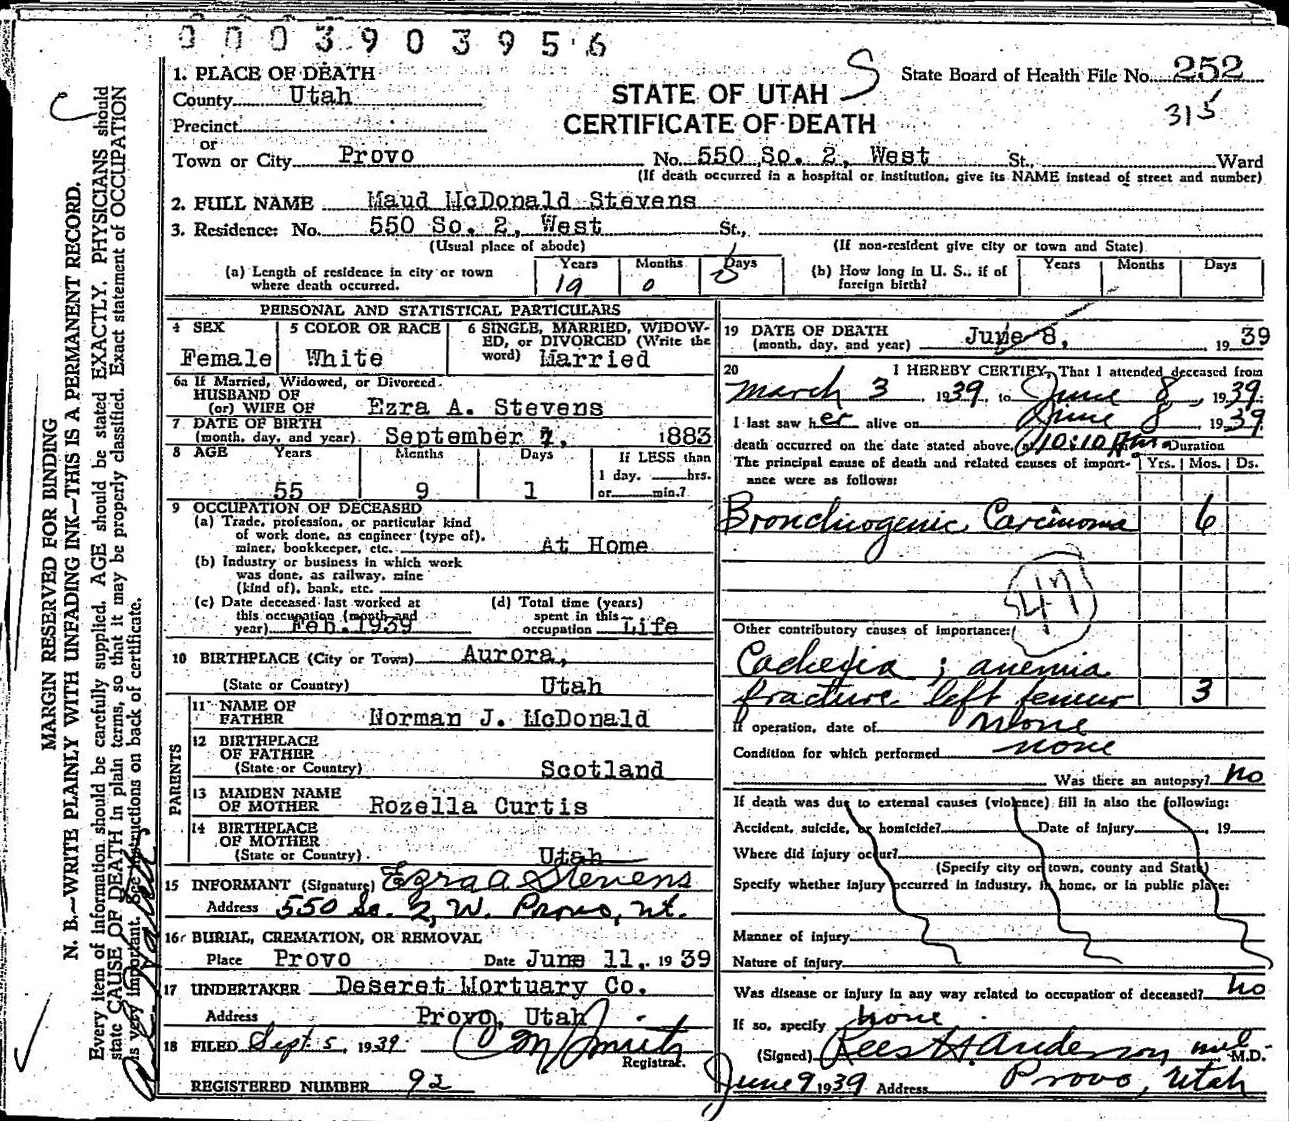 0003903956
1. PLACE OF DEATH
County Utah
Precinct
or
Town or City Provo
S
STATE OF UTAH
CERTIFICATE OF DEATH
State Board of Health File No. 252
315
No. 550 So. 2, West St., Ward
(If death occurred in a hospital or institution, give its NAME instead of street and number)
2. FULL NAME Maud McDonald Stevens
3. Residence: No. 550 So. 2, West St.,
(Usual place of abode) (If non-resident give city or town and State)
(a) Length of residence in city or town where death occurred. Years 19 Months 0 Days
(b) How long in U. S., if of foreign birth? Years Months Days
PERSONAL AND STATISTICAL PARTICULARS
4 SEX Female
5 COLOR OR RACE White
6 SINGLE, MARRIED, WIDOWED, or DIVORCED (Write the word) Married
6a If Married, Widowed, or Divorced
HUSBAND OF
(or) WIFE OF Ezra A. Stevens
7 DATE OF BIRTH
(month, day, and year) September 7, 1883
8 AGE Years 55 Months 9 Days 1
If LESS than
1 day, hrs.
or min.?
9 OCCUPATION OF DECEASED
(a) Trade, profession, or particular kind
of work done, as engineer (type of),
miner, bookkeeper, etc. At Home
(b) Industry or business in which work
was done, as railway, mine
(kind of), bank, etc.
(c) Date deceased last worked at
this occupation (month and
year) Feb. 1939
(d) Total time (years)
spent in this
occupation Life
10 BIRTHPLACE (City or Town) Aurora,
(State or Country) Utah
PARENTS
11 NAME OF
FATHER Norman J. McDonald
12 BIRTHPLACE
OF FATHER
(State or Country) Scotland
13 MAIDEN NAME
OF MOTHER Rozella Curtis
14 BIRTHPLACE
OF MOTHER
(State or Country) Utah
15 INFORMANT (Signature) Ezra A Stevens
Address 550 So. 2, W. Provo, Ut.
16 BURIAL, CREMATION, OR REMOVAL
Place Provo Date June 11, 1939
17 UNDERTAKER Deseret Mortuary Co.
Address Provo, Utah
18 FILED Sept. 5, 1939
Registrar.
REGISTERED NUMBER 92
19 DATE OF DEATH
(month, day, and year) June 8, 1939
20 I HEREBY CERTIFY, That I attended deceased from
March 3, 1939, to June 8, 1939.
I last saw her alive on June 8, 1939
death occurred on the date stated above, 10:10 Duration
The principal cause of death and related causes of importance were as follows: Yrs. Mos. Ds.
Bronchiogenic Carcinoma 6
47
Other contributory causes of importance:
Cachexia ; anemia
fracture left femur 3
If operation, date of None
Condition for which performed none
Was there an autopsy? no
If death was due to external causes (violence) fill in also the following:
Accident, suicide, or homicide? Date of injury 19
Where did injury occur?
(Specify city or town, county and State)
Specify whether injury occurred in industry, in home, or in public place:
Manner of injury
Nature of injury
Was disease or injury in any way related to occupation of deceased? no
If so, specify none
(Signed) Rees H. Anderson M.D.
June 9 1939 Address Provo, Utah
MARGIN RESERVED FOR BINDING
N. B.—WRITE PLAINLY WITH UNFADING INK—THIS IS A PERMANENT RECORD.
Every item of information should be carefully supplied. AGE should be stated EXACTLY. PHYSICIANS should
state CAUSE OF DEATH in plain terms, so that it may be properly classified. Exact statement of OCCUPATION
is very important. See instructions on back of certificate.